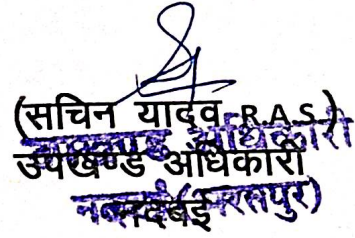 (सचिन यादव R.A.S.)
उपखण्ड अधिकारी
उपखण्ड अधिकारी
नदबई
नदबई (भरतपुर)